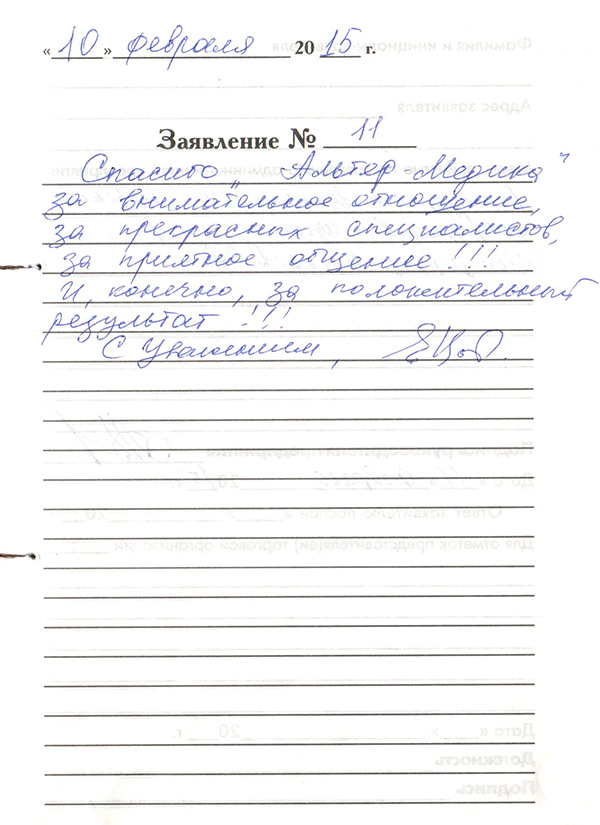 «10» февраля 2015 г.
Заявление № 11
Спасибо „Альтер Медика"
за внимательное отношение,
за прекрасных специалистов,
за приятное общение!!!
И, конечно, за положительный
результат!!!
С Уважением,